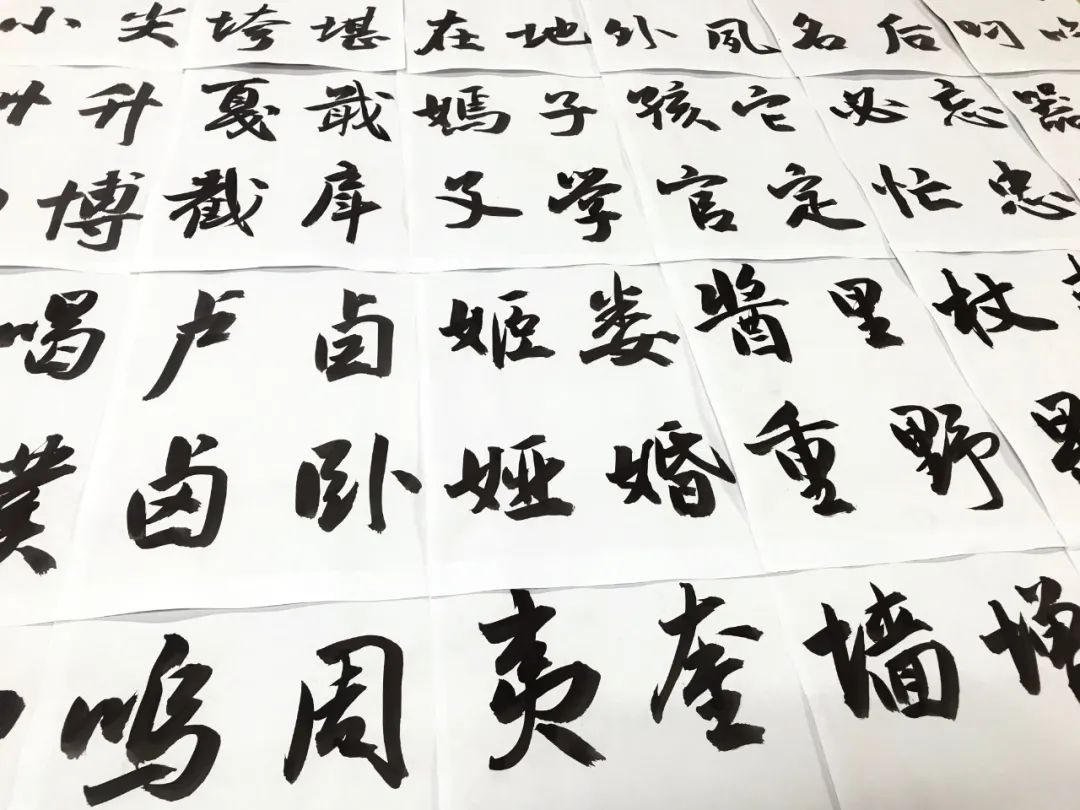 小 尖 垮 堪 在 地 外 夙 名 后 呵
升 戛 戢 嫣 子 孩 它 必 忘 器
博 截 库 孓 学 官 定 忙 忠
喝 卢 卤 姬 娄 酱 里 杖
卤 卧 娅 婚 重 野
呜 周 夷 奎 墙 增